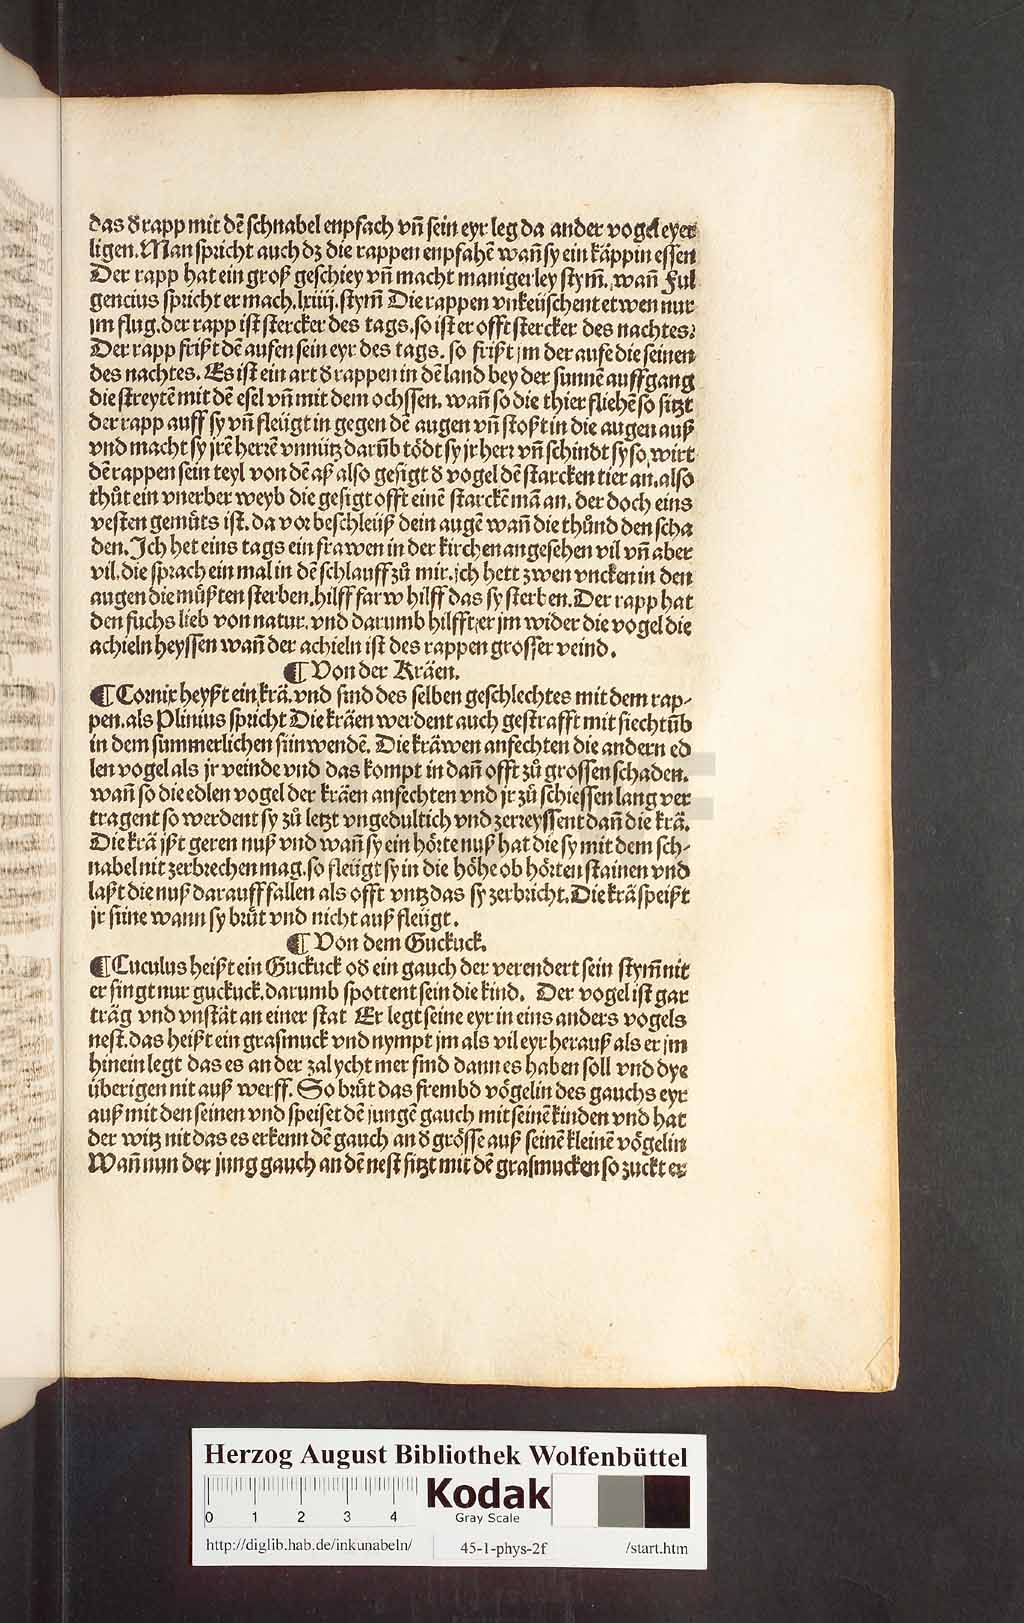 das d̕ rapp mit dē schnabel enpfach vn̄ sein eyr leg da ander vogel eyer
ligen. Man spricht auch dz die rappen enpfahē wan̄ sy ein käppin essen
Der rapp hat ein groß geschiey vn̄ macht manigerley stym̄. wan̄ Ful
gencius spricht er mach. lxiiij. stym̄ Die rappen vnkeüschent etwen nur
jm flug. der rapp ist stercker des tags. so ist er offt stercker des nachtes:
Der rapp frißt dē aufen sein eyr des tags. so frißt jm der aufe die seinen
des nachtes. Es ist ein art d̕ rappen in dē land bey der sunnē auffgang
die streytē mit dē esel vn̄ mit dem ochssen. wan̄ so die thier fliehē so sitzt
der rapp auff sy vn̄ fleügt in gegen dē augen vn̄ stoßt in die augen auß
vnd macht sy jrē herrē vnnütz darūb tödt sy jr herr vn̄ schindt sy so wirt
dē rappen sein teyl von dē aß also gesigt d̕ vogel dē starcken tier an. also
thůt ein vnerber weyb die gesigt offt einē starckē mā an. der doch eins
vesten gemüts ist. da vor beschleüß dein augē wan̄ die thůnd den scha
den. Ich het eins tags ein frawen in der kirchen angesehen vil vn̄ aber
vil. die sprach ein mal in dē schlauff zů mir. ich hett zwen vncken in den
augen die müßten sterben. hilff farw hilff das sy sterben. Der rapp hat
den fuchs lieb von natur. vnd darumb hilfft er jm wider die vogel die
achieln heyssen wan̄ der achieln ist des rappen grosser veind.
¶ Von der Kräen.
¶ Cornix heyßt ein krä. vnd sind des selben geschlechtes mit dem rap-
pen. als Plinius spricht Die kräen werdent auch gestrafft mit siechtūb
in dem summerlichen sünwendē. Die kräwen anfechten die andern ed
len vogel als jr veinde vnd das kompt in dan̄ offt zů grossen schaden.
wan̄ so die edlen vogel der kräen anfechten vnd jr zů schiessen lang ver
tragent so werdent sy zů letzt vngedultich vnd zerreyssent dan̄ die krä.
Die krä jßt geren nuß vnd wan̄ sy ein hörte nuß hat die sy mit dem sch-
nabel nit zerbrechen mag. so fleügt sy in die höhe ob hörten stainen vnd
laßt die nuß darauff fallen als offt vntz das sy zerbricht. Die krä speißt
jr süne wann sy brüt vnd nicht auß fleügt.
¶ Von dem Guckuck.
¶ Cuculus heißt ein Guckuck od̕ ein gauch der verendert sein stym̄ nit
er singt nur guckuck. darumb spottent sein die kind. Der vogel ist gar
träg vnd vnstät an einer stat Er legt seine eyr in eins anders vogels
nest. das heißt ein grasmuck vnd nympt jm als vil eyr herauß als er jm
hinein legt das es an der zal ycht mer sind dann es haben soll vnd dye
überigen nit auß werff. So brüt das frembd vögelin des gauchs eyr
auß mit den seinen vnd speiset dē jungē gauch mit seinē kinden vnd hat
der witz nit das es erkenn dē gauch an d̕ grösse auß seinē kleinē vögelin
Wan̄ nun der jung gauch an dē nest sitzt mit dē grasmucken so zuckt er
Herzog August Bibliothek Wolfenbüttel
0 1 2 3 4
Kodak
Gray Scale
http://diglib.hab.de/inkunabeln/ 45-1-phys-2f /start.htm